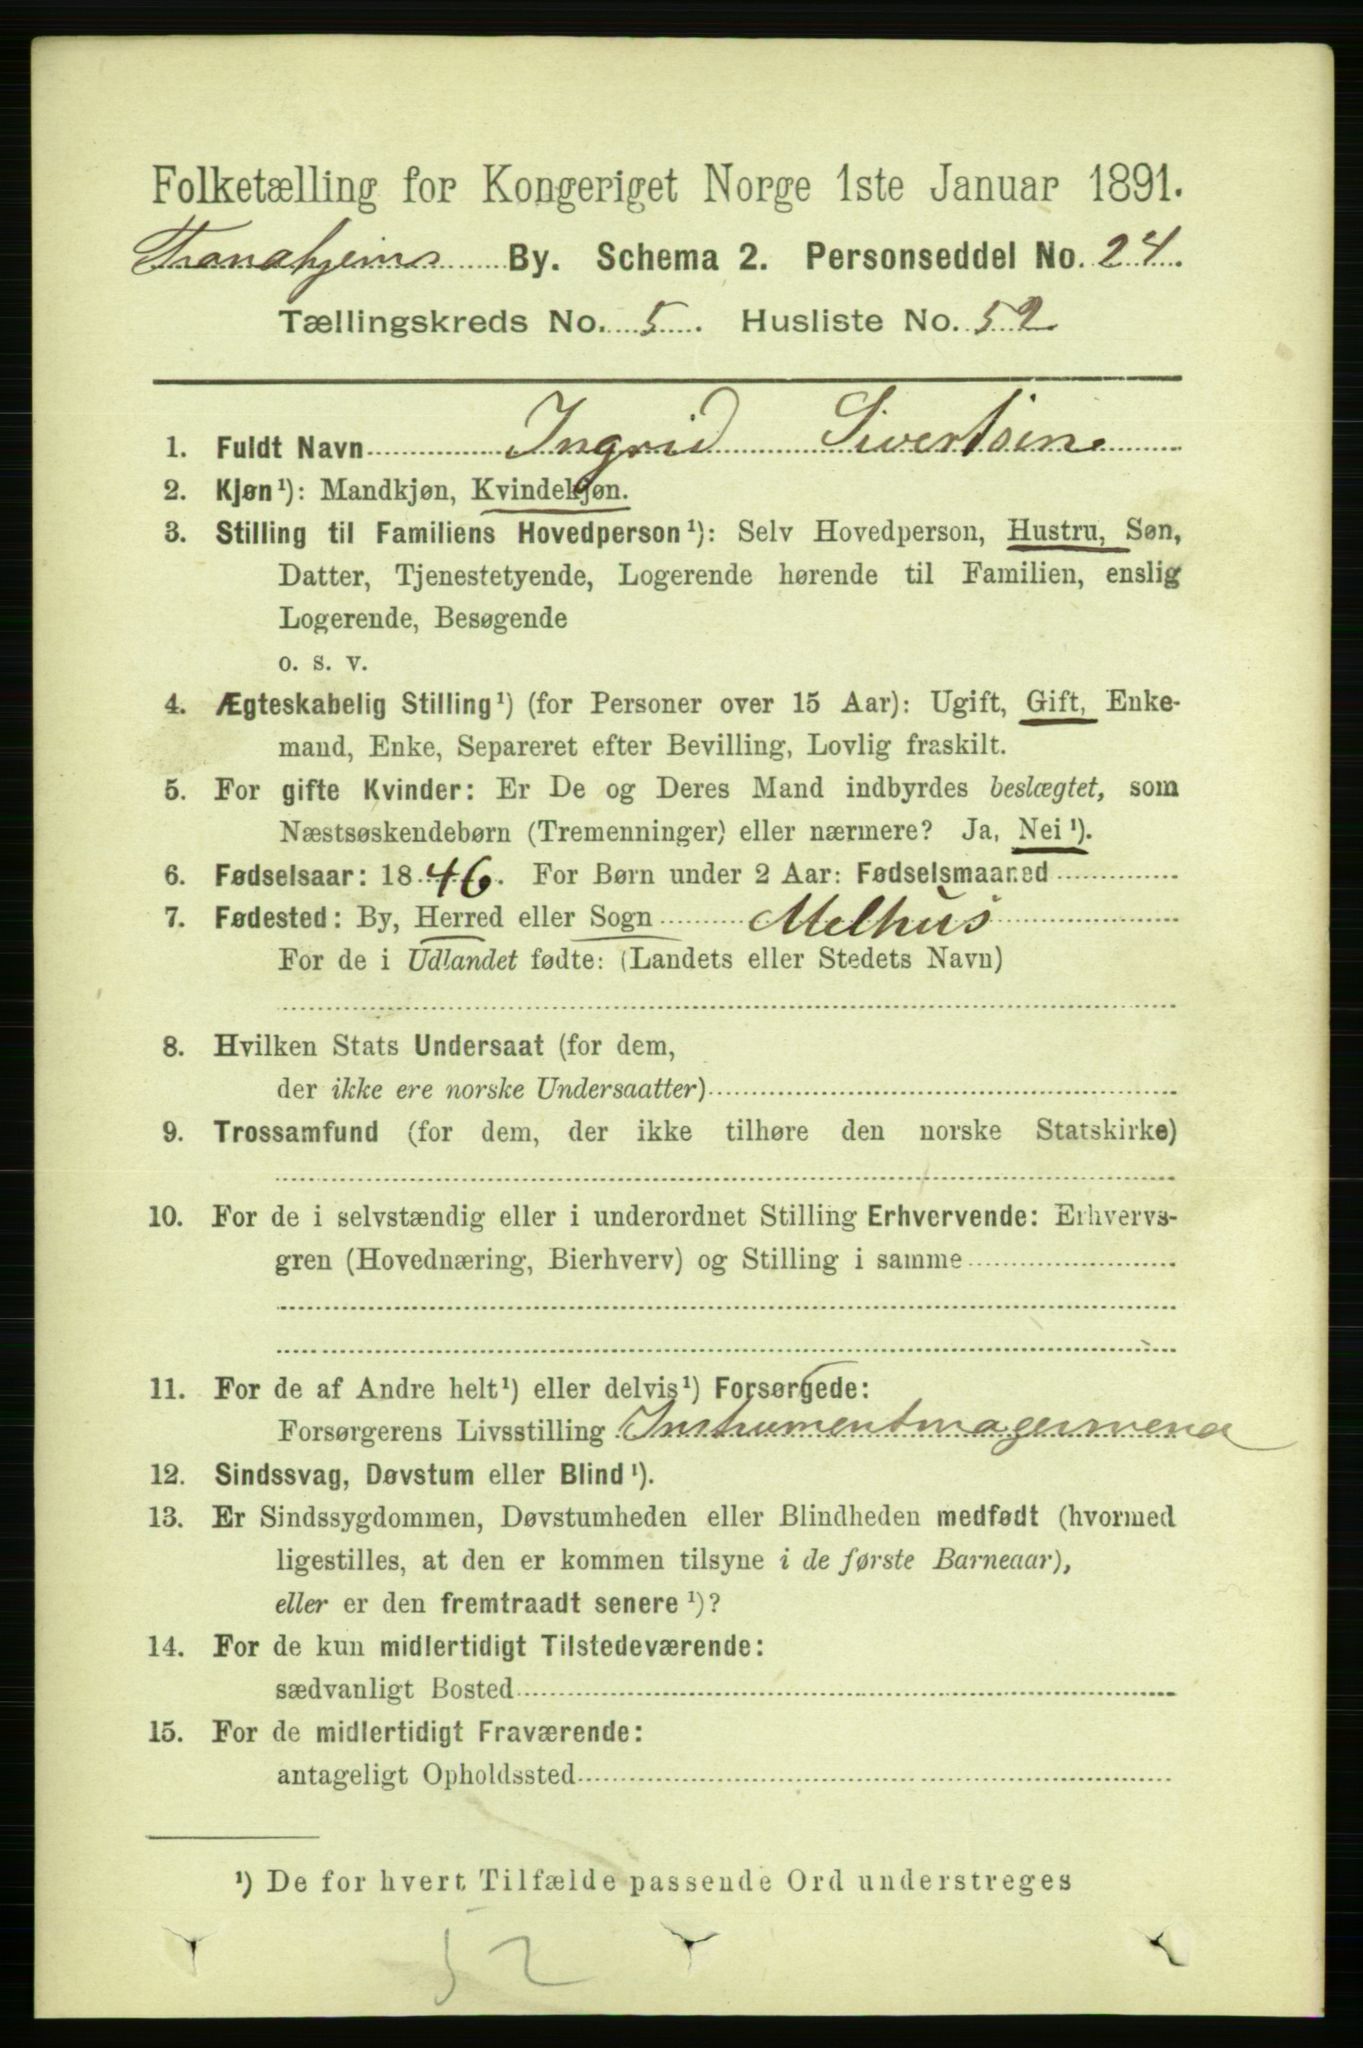 Folketælling for Kongeriget Norge 1ste Januar 1891.
Trondhjems By. Schema 2. Personseddel No. 24.
Tællingskreds No. 5. Husliste No. 52
1. Fuldt Navn Ingrid Sivertsen
2. Kjøn¹): Mandkjøn, Kvindekjøn.
3. Stilling til Familiens Hovedperson¹): Selv Hovedperson, Hustru, Søn,
Datter, Tjenestetyende, Logerende hørende til Familien, enslig
Logerende, Besøgende
o. s. v.
4. Ægteskabelig Stilling¹) (for Personer over 15 Aar): Ugift, Gift, Enke-
mand, Enke, Separeret efter Bevilling, Lovlig fraskilt.
5. For gifte Kvinder: Er De og Deres Mand indbyrdes beslægtet, som
Næstsøskendebørn (Tremenninger) eller nærmere? Ja, Nei¹).
6. Fødselsaar: 1846. For Børn under 2 Aar: Fødselsmaaned
7. Fødested: By, Herred eller Sogn Melhus
For de i Udlandet fødte: (Landets eller Stedets Navn)
8. Hvilken Stats Undersaat (for dem,
der ikke ere norske Undersaatter)
9. Trossamfund (for dem, der ikke tilhøre den norske Statskirke)
10. For de i selvstændig eller i underordnet Stilling Erhvervende: Erhvervs-
gren (Hovednæring, Bierhverv) og Stilling i samme
11. For de af Andre helt¹) eller delvis¹) Forsørgede:
Forsørgerens Livsstilling
12. Sindssvag, Døvstum eller Blind¹).
13. Er Sindssygdommen, Døvstumheden eller Blindheden medfødt (hvormed
ligestilles, at den er kommen tilsyne i de første Barneaar),
eller er den fremtraadt senere¹)?
14. For de kun midlertidigt Tilstedeværende:
sædvanligt Bosted
15. For de midlertidigt Fraværende:
antageligt Opholdssted
¹) De for hvert Tilfælde passende Ord understreges
52